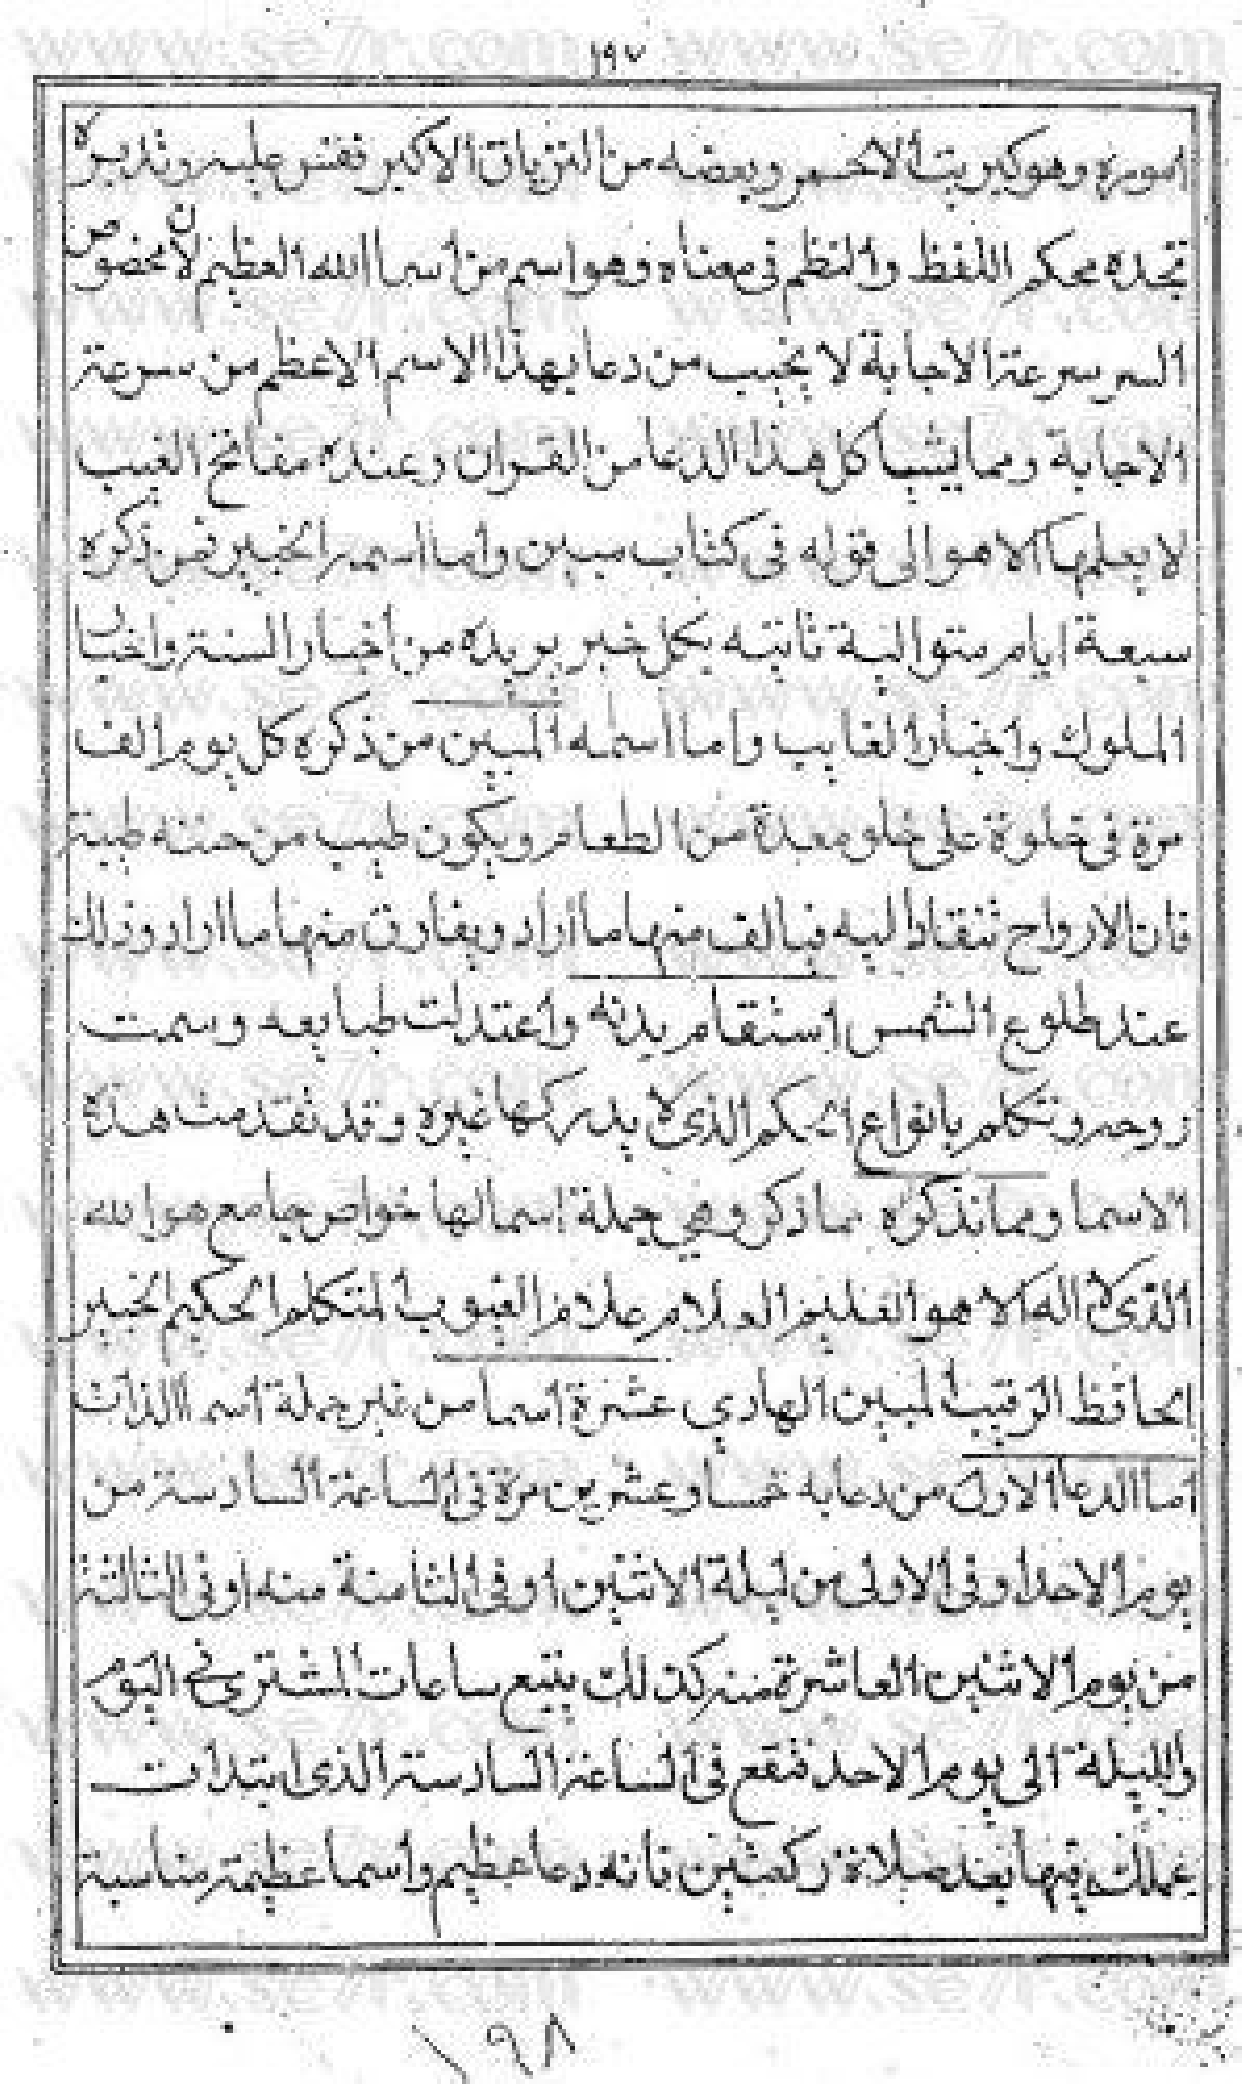 ١٩٧
اموره وهو كبريت الاحمر وبعضه من الترياق الاكبر فقس عليه وتدبره
تجده محكم اللفظ والنظم فى معناه وهو اسم من اسما الله العظيم لان مخصوص
السر سرعة الاجابة لا يخيب من دعا بهذا الاسم الاعظم من سرعة
الاجابة ومما يشاكل هذا الدعا من القران وعنده مفاتح الغيب
لا يعلمها الا هو الى قوله فى كتاب مبين واما اسمه الخبير فمن ذكره
سبعة ايام متوالية تاتيه بكل خبر يريده من اخبار السنة واخبار
الملوك واخبار الغايب واما اسمه المبين من ذكره كل يوم الف
مرة فى خلوة على خلو معدة من الطعام ويكون طيب من جنته طيبة
فان الارواح تنقاد اليه فيالف منها ما اراد ويفارق منها ما اراد وذلك
عند طلوع الشمس استقام بدنه واعتدلت طبايعه وسمت
روحه وتكلم بانواع الحكم الذى لا يدركها غيره وقد تقدمت هذه
الاسما ومما نذكره بما ذكر وهي جملة اسما لها خواص جامع هو الله
الذى لا اله الا هو العليم العلام علام الغيوب المتكلم الحكيم الخبير
الحافظ الرقيب المبين الهادي عشرة اسما من غير جملة اسم الذات
اما الدعا الاول من دعا به خمسا وعشرين مرة فى الساعة السادسة من
يوم الاحد او فى الاولى من ليلة الاثنين او فى الثامنة منه او فى الثالثة
من يوم الاثنين العاشرة منه كذلك يتبع ساعات المشترى فى اليوم
والليلة الى يوم الاحد فتقع فى الساعة السادسة الذى ابتدات
عملك فيها بعد صلاة ركعتين فانه دعا عظيم واسما عظيمة مناسبة
١٩٨